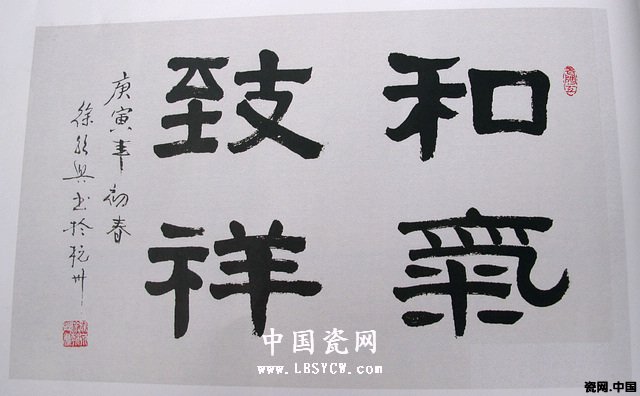 和氣
致祥
庚寅年初春
徐 興书於杭州
中国瓷网
www.LBSYCW.com
瓷网.中国